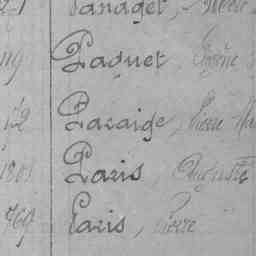 Panaget,
119 Paquet, Eugène
172 Paraige, Pierre Ma
1801 Paris, Auguste
769 Paris, Pierre